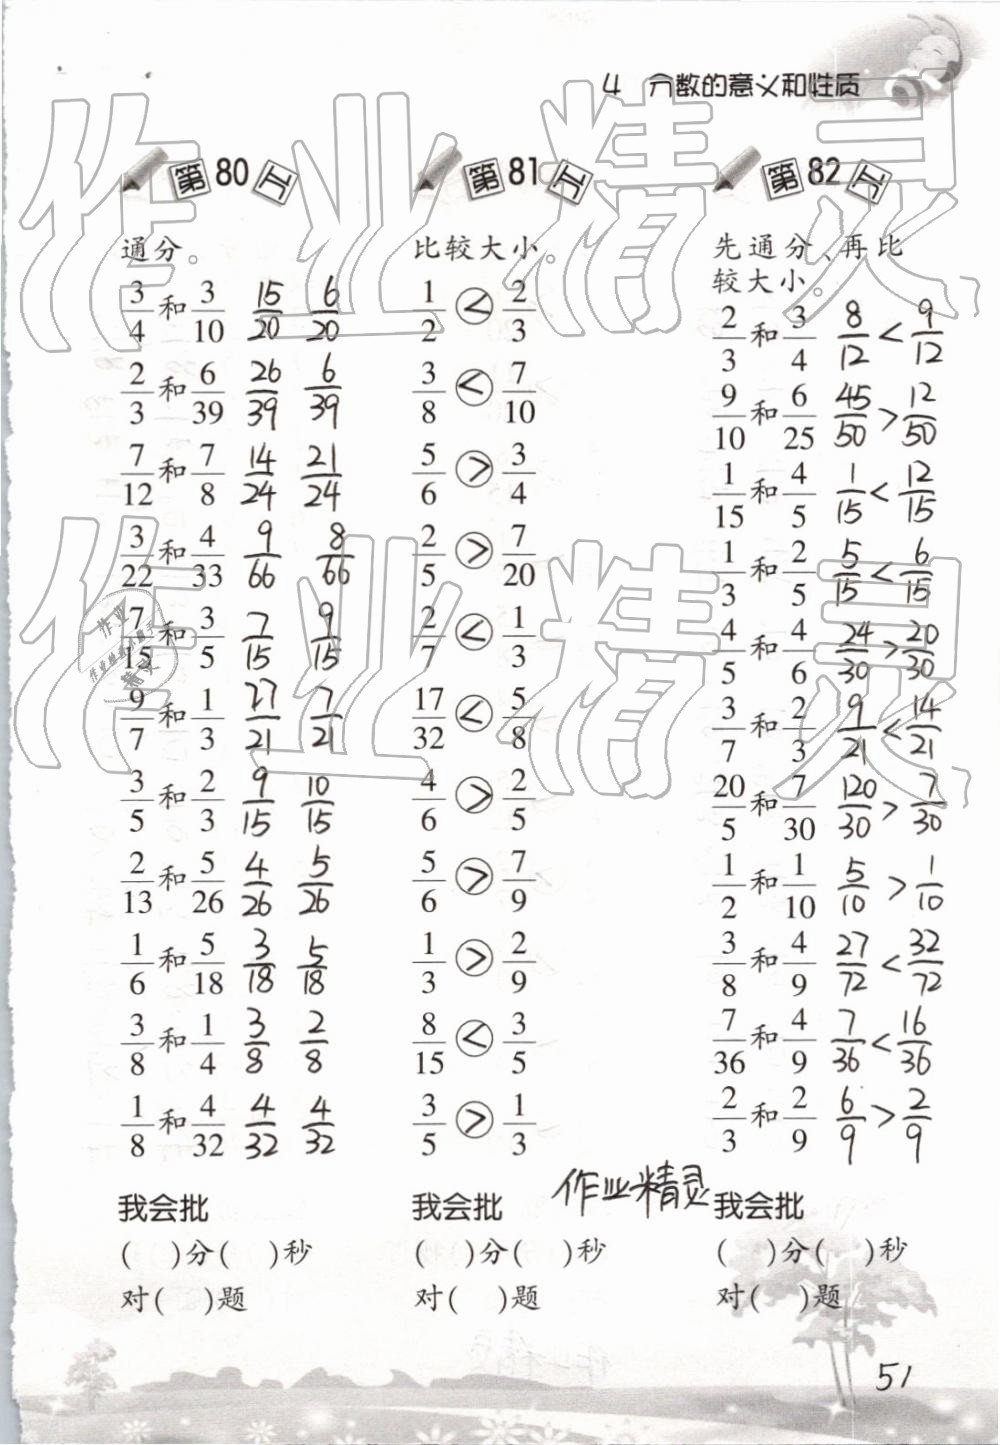 4 分数的意义和性质
第80天
通分。
3/4 和 3/10 15/20 6/20
2/3 和 6/39 26/39 6/39
7/12 和 7/8 14/24 21/24
3/22 和 4/33 9/66 8/66
7/15 和 3/5 7/15 9/15
9/7 和 1/3 27/21 7/21
3/5 和 2/3 9/15 10/15
2/13 和 5/26 4/26 5/26
1/6 和 5/18 3/18 5/18
3/8 和 1/4 3/8 2/8
1/8 和 4/32 4/32 4/32
我会批
( )分( )秒
对( )题
第81天
比较大小。
1/2 < 2/3
3/8 < 7/10
5/6 > 3/4
2/5 > 7/20
2/7 < 1/3
17/32 < 5/8
4/6 > 2/5
5/6 > 7/9
1/3 > 2/9
8/15 < 3/5
3/5 > 1/3
我会批
( )分( )秒
对( )题
第82天
先通分、再比
较大小。
2/3 和 3/4 8/12 < 9/12
9/10 和 6/25 45/50 > 12/50
1/15 和 4/5 1/15 < 12/15
1/3 和 2/5 5/15 < 6/15
4/5 和 4/6 24/30 > 20/30
3/7 和 2/3 9/21 < 14/21
20/5 和 7/30 120/30 > 7/30
1/2 和 1/10 5/10 > 1/10
3/8 和 4/9 27/72 < 32/72
7/36 和 4/9 7/36 < 16/36
2/3 和 2/9 6/9 > 2/9
作业精灵
我会批
( )分( )秒
对( )题
51
作业精灵
作业精灵